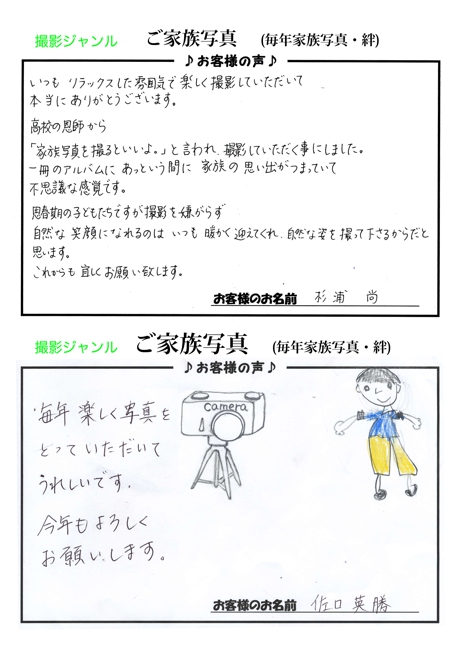 撮影ジャンル ご家族写真 (毎年家族写真・絆)
♪お客様の声♪
いつも リラックスした雰囲気で楽しく撮影していただいて
本当にありがとうございます。
高校の恩師から
「家族写真を撮るといいよ。」と言われ、撮影していただく事にしました。
一冊のアルバムに あっという間に 家族の思い出がつまっていて
不思議な感覚です。
思春期の子どもたちですが撮影を嫌がらず
自然な 笑顔になれるのは いつも 暖かく迎えてくれ、自然な姿を撮って下さるからだと
思います。
これからも 宜しくお願い致します。
お客様のお名前 杉浦 尚
撮影ジャンル ご家族写真 (毎年家族写真・絆)
♪お客様の声♪
毎年 楽しく写真を
とっていただいて
うれしいです.
今年もよろしく
お願いします。
camera
お客様のお名前 佐口 英勝